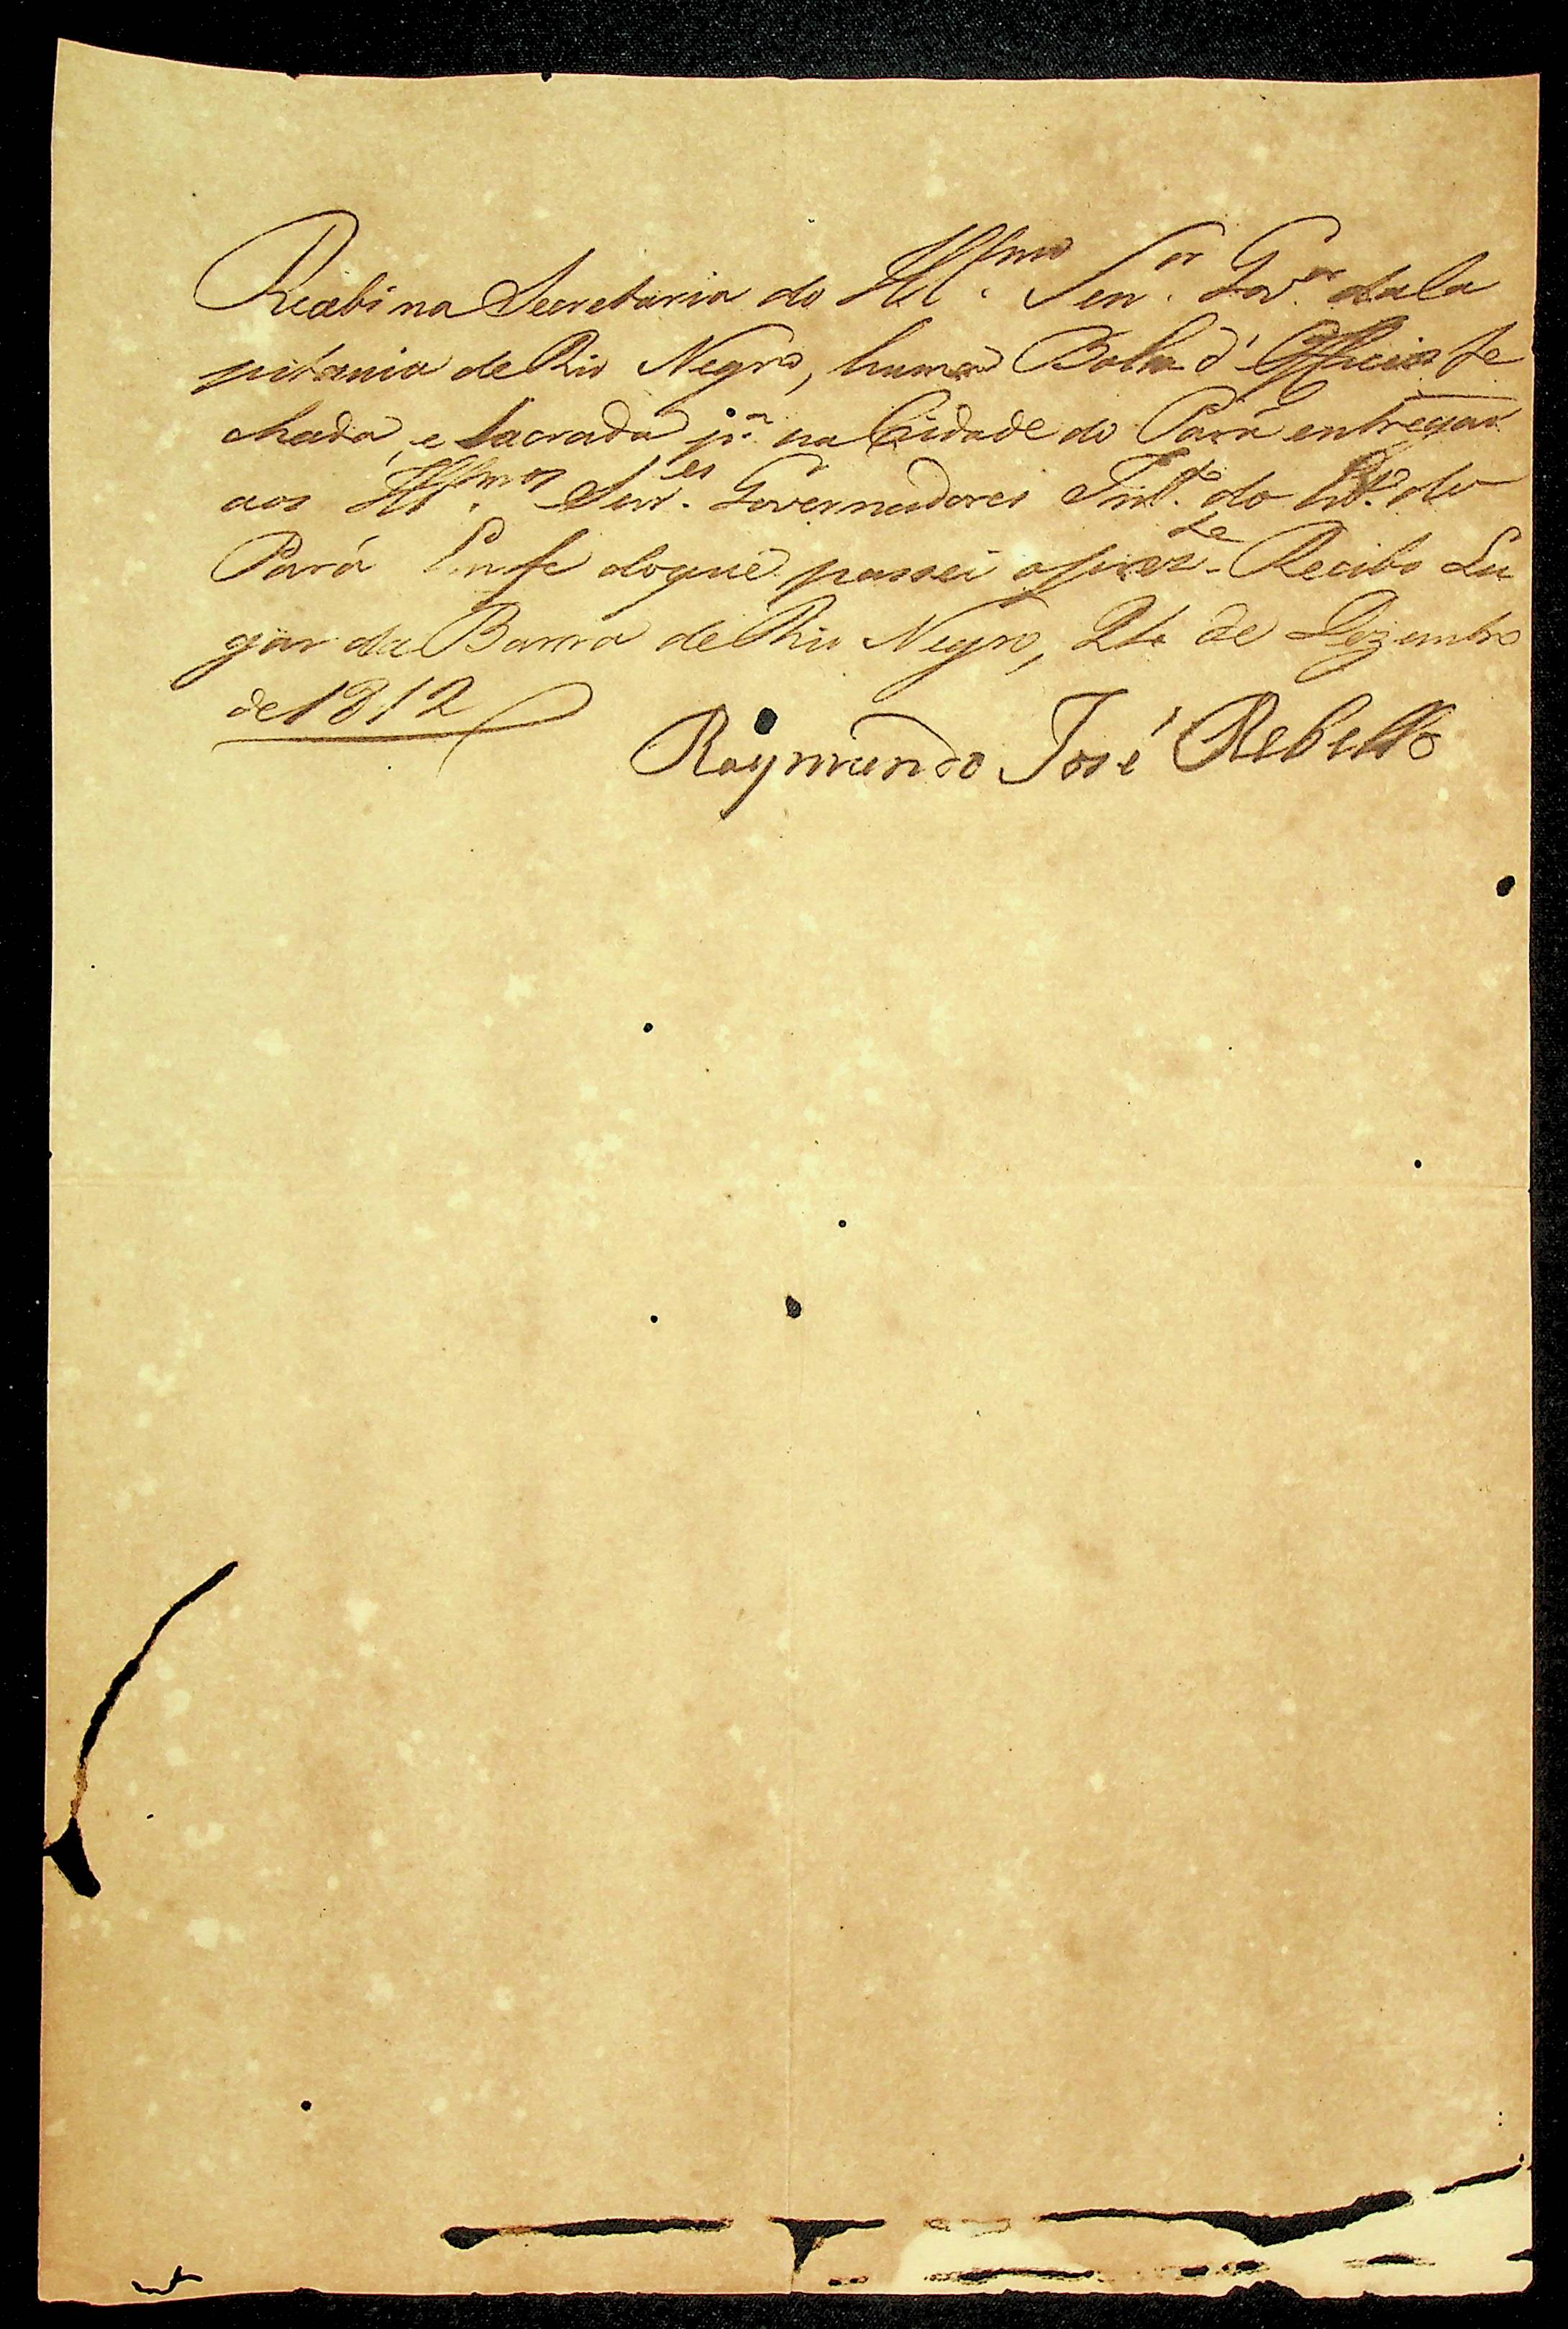 Recebi na Secretaria do Ill.mo Sen.or Gov.or da Ca
pitania de Rio Negro, huma Bolsa d'Officios fe
chada, e Lacrada p.a na Cidade do Pará entregar
aos Ill.mos Sen.es Governadores Int.os do Est.o do
Pará Em fe do que passei o prez.te Recibo Lu
gar da Barra de Rio Negro, de Dezembro
de 1812
Raymundo José Rebello